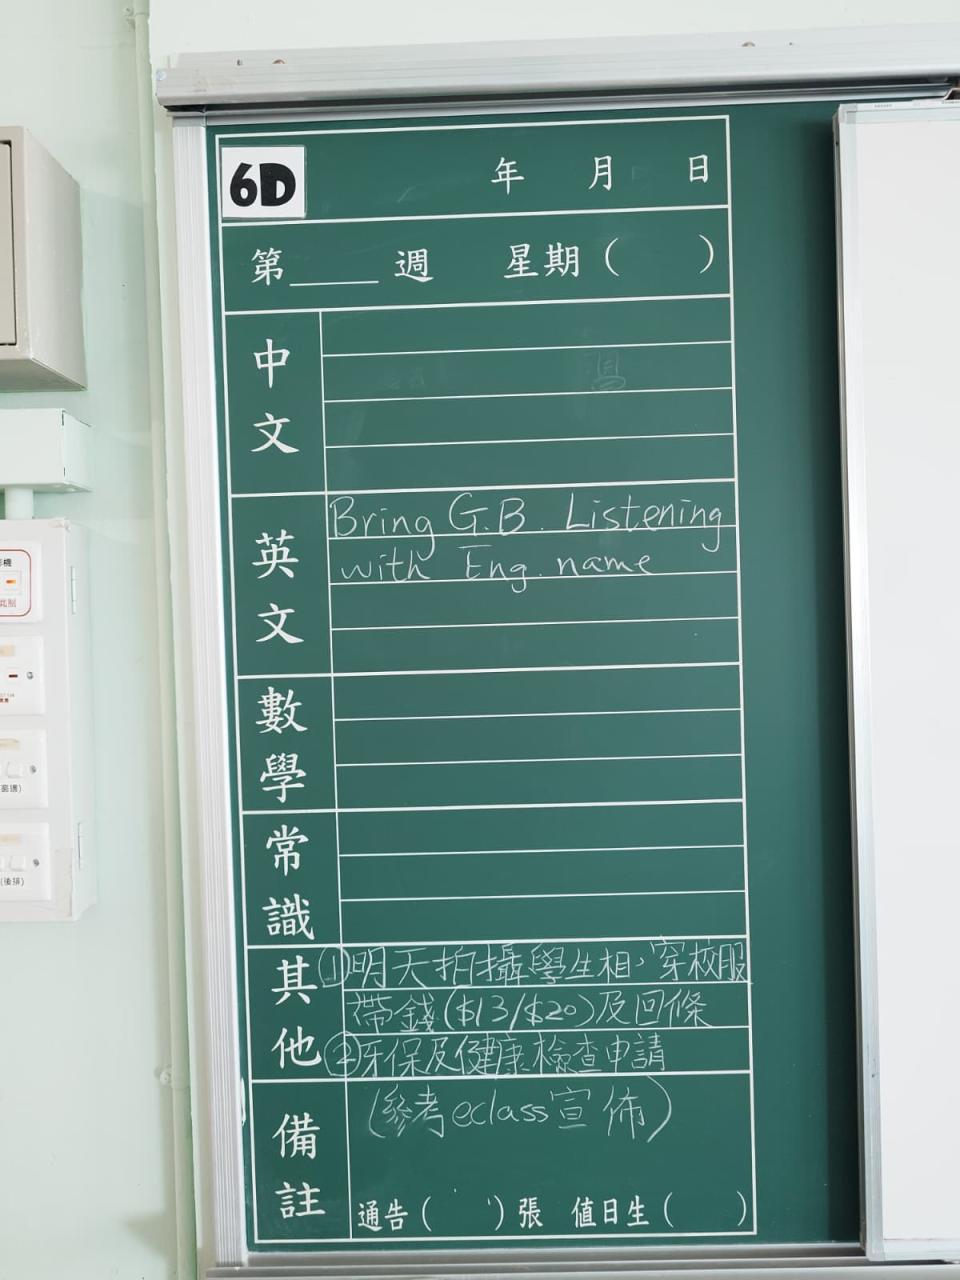 6D 年 月 日
第____週 星期( )
中文
英文
Bring G.B. Listening
with Eng. name
數學
常識
其他
①明天拍攝學生相，穿校服
帶錢($13/$20)及回條
②牙保及健康檢查申請
備註
(參考eclass宣佈)
通告( )張 值日生( )
(後排)